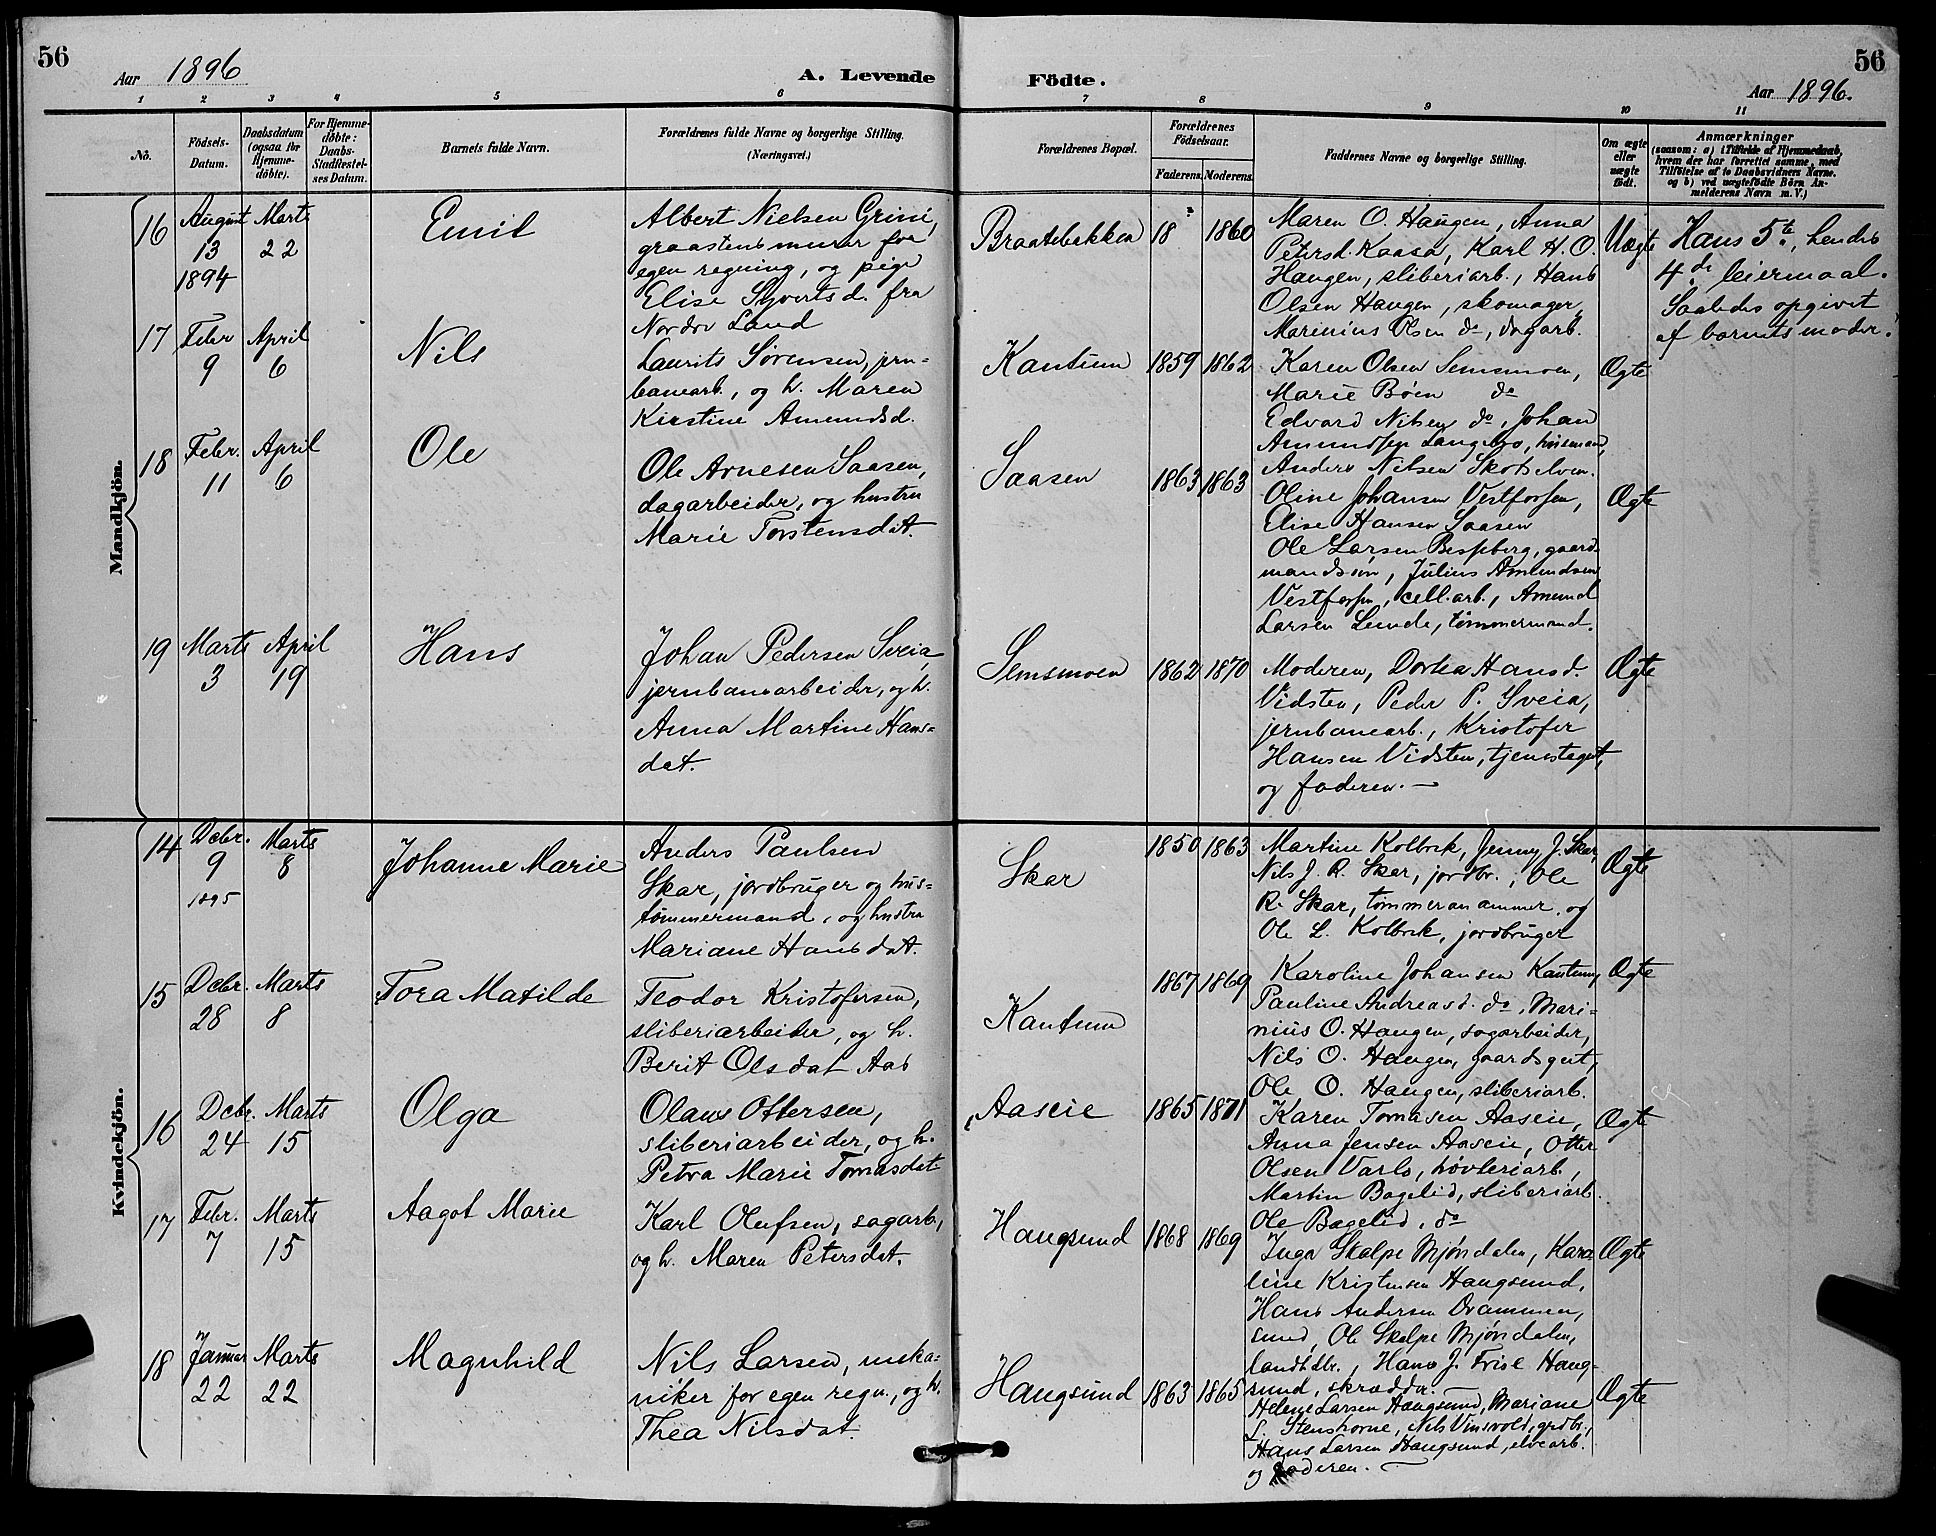 56
Aar 1896
A. Levende
Födte.
56
Aar 1896.
1 2 3 4 5 6 7 8 9 10 11
No.
Födsels-Datum.
Daabsdatum (ogsaa for Hjemmedöbte).
For Hjemmedöbte: Daabs-Stadfæstelses Datum.
Barnets fulde Navn.
Forældrenes fulde Navne og borgerlige Stilling.
(Næringsvei.)
Forældrenes Bopæl.
Forældrenes Födselsaar.
Faderens. Moderens.
Faddernes Navne og borgerlige Stilling.
Om ægte eller uægte födt.
Anmærkninger
(saasom: a) i Tilfælde af Hjemmedaab,
hvem der har forrettet samme, med
Tilföielse af to Daabsvidners Navne.
og b) ved uægtefödte Börn An-
melderens Navn m. V.)
Mandkjön.
16 August 13 1894 Marts 22 Emil
Albert Nielsen Grini,
graastensmurer for
egen regning, og pige
Elise Syverts d. fra
Nordre Land
Braatebakken 18 ? 1860
Maren O. Haugen, Anna
Petersd. Kaasa, Karl H. O.
Haugen, sliberiarb., Hans
Olsen Haugen, skomager,
Marinius Olsen do, dagarb.
Uægte
Hans 5te, hendes
4de leiermaal.
Saaledes opgivet
af barnets moder.
17 Febr 9 April 6 Nils
Laurits Sørensen, jern-
banearb., og h. Maren
Kirstine Amundsd.
Kantum 1859 1862
Karen Olsen Semsmoen,
Marie Böen do
Edvard Nilsen do, Johan
Amundsen Langebro, husmand,
Anders Nilsen Skotselven.
Ægte
18 Febr. 11 April 6 Ole
Ole Arnesen Saasen,
dagarbeider, og hustru
Marie Torstensdat.
Saasen 1863 1863
Oline Johansen Vestfossen,
Elise Hansen Saasen
Ole Larsen Besseberg, gaard-
mandssøn, Julius Amundsen
Vestfossen, cell.arb., Amund
Larsen Lunde, tømmermand.
Ægte
19 Marts 3 April 19 Hans
Johan Pedersen Sveia,
jernbanearbeider, og h.
Anna Martine Hans-
dat.
Semsmoen 1862 1870
Moderen, Dortea Hansd.
Vidsten, Peder P. Sveia,
jernbanearb., Kristofer
Hansen Vidsten, tjenestegut,
og faderen.
Ægte
Kvindekjön.
14 Dcbr. 9 1895 Marts 8 Johanne Marie
Anders Paulsen
Skar, jordbruger og hus-
tömmermand, og hustru
Mariane Hansdat.
Skar 1850 1863
Martine Kolbrek, Jenny J. Skar,
Nils J. R. Skar, jordbr., Ole
R. Skar, tømmeranammer, og
Ole L. Kolbrek, jordbruger
Ægte
15 Dcbr. 28 Marts 8 Tora Matilde
Teodor Kristofersen,
sliberiarbeider, og h.
Berit Olsdat Aas
Kantum 1867 1869
Karoline Johansen Kantum,
Pauline Andreasd. do, Mari-
nius O. Haugen, sagarbeider,
Nils O. Haugen, gaardsgut,
Ole O. Haugen, sliberiarb.
Ægte
16 Dcbr. 24 Marts 15 Olga
Olaus Ottersen,
sliberiarbeider, og h.
Petra Marie Tomasdat
Aaseie 1865 1871
Karen Tomasen Aaseie,
Anna Jensen Aaseie, Otter
Olsen Varlo, høvleriarb.,
Martin Bagelid, sliberiarb.
Ole Bagelid, do
Ægte
17 Febr. 7 Marts 15 Aagot Marie
Karl Olufsen, sagarb.,
og h. Maren Petersdat.
Haugsund 1868 1869
Inga Skalpe Mjöndalen, Karo
line Kristensen Haugsund,
Hans Andersen Drammen,
sund, Ole Skalpe Mjöndalen,
landhdlr., Hans J. Frisl Haug-
sund, skrædder.
Ægte
18 Januar 22 Marts 22 Magnhild
Nils Larsen, meka-
niker for egen regn., og h.
Thea Nilsdat.
Haugsund 1863 1865
Helene Larsen Haugsund, Mariane
L. Stenshorne, Nils Vinsvold, grdbr.,
Hans Larsen Haugsund, elvearb.
og faderen.
Ægte